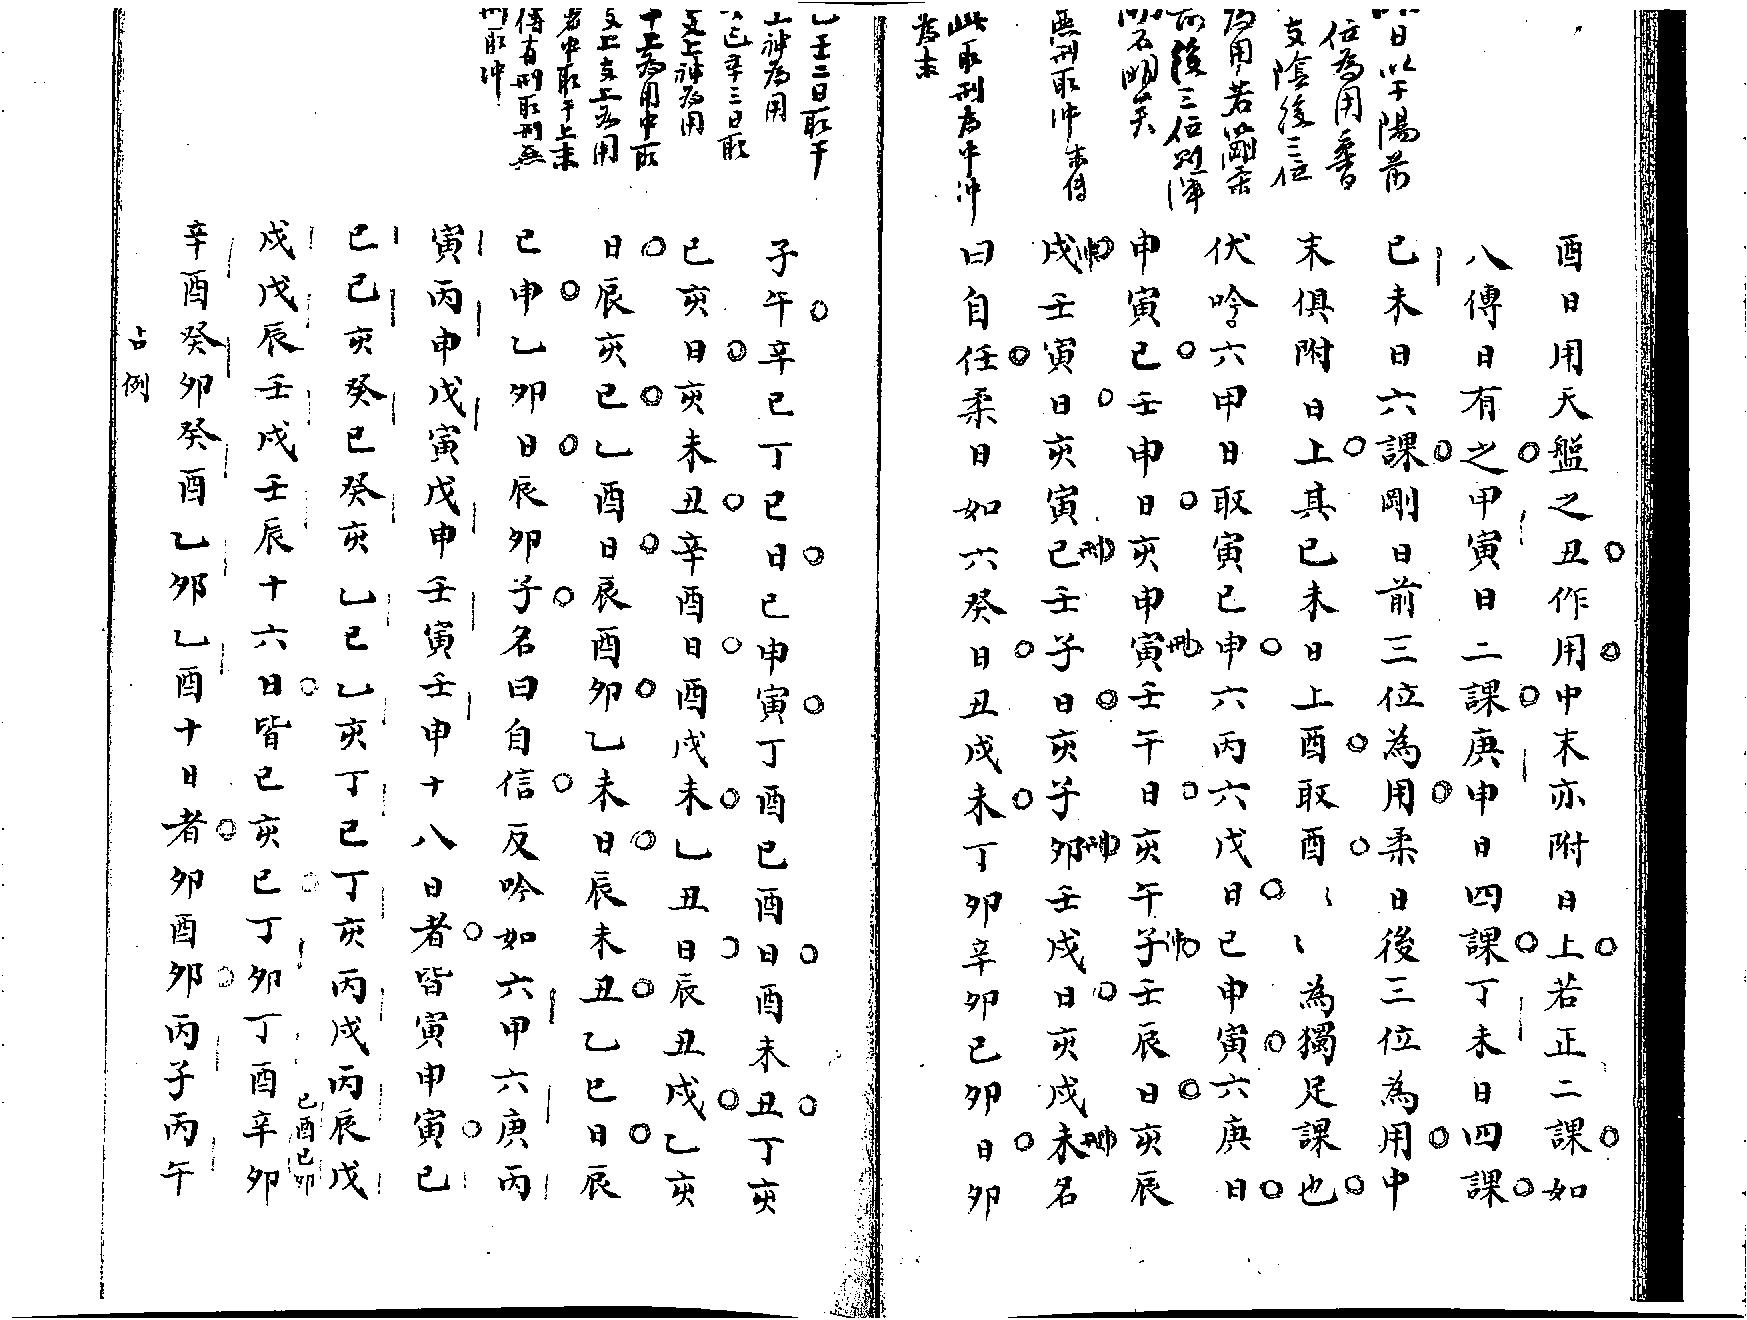 酉日用天盤之丑作用中末亦附日上若正二課如
八傳日有之甲寅日二課庚申日四課丁未日四課
己未日六課剛日前三位為用柔日後三位為用中
末俱附日上其己未日上酉取酉〻〻為獨足課也
伏吟六甲日取寅巳申六丙六戊日巳申寅六庚日
申寅巳壬申日亥申寅壬午日亥午子壬辰日亥辰
戌壬寅日亥寅巳壬子日亥子卯壬戌日亥戌未名
曰自任柔日如六癸日丑戌未丁卯辛卯己卯日卯
子午辛巳丁巳日巳申寅丁酉己酉日酉未丑丁亥
己亥日亥未丑辛酉日酉戌未乙丑日辰丑戌乙亥
日辰亥巳乙酉日辰酉卯乙未日辰未丑乙巳日辰
巳申乙卯日辰卯子名曰自信反吟如六甲六庚丙
寅丙申戊寅戊申壬寅壬申十八日者皆寅申寅巳
巳己亥癸巳癸亥乙巳乙亥丁巳丁亥丙戌丙辰戊
戌戊辰壬戌壬辰十六日皆巳亥巳丁卯丁酉辛卯
己酉己卯
辛酉癸卯癸酉乙卯乙酉十日者卯酉卯丙子丙午
占例
日以干陽前
位為用
支陰後三位
為用若
前後三位
無刑取冲末傳
此取刑為中冲
為末
乙壬二日取干
上神為用
己辛三日取
支上神為用
干上為用中取
支上支上為用
者中取干上末
傳有刑取刑無
刑取冲